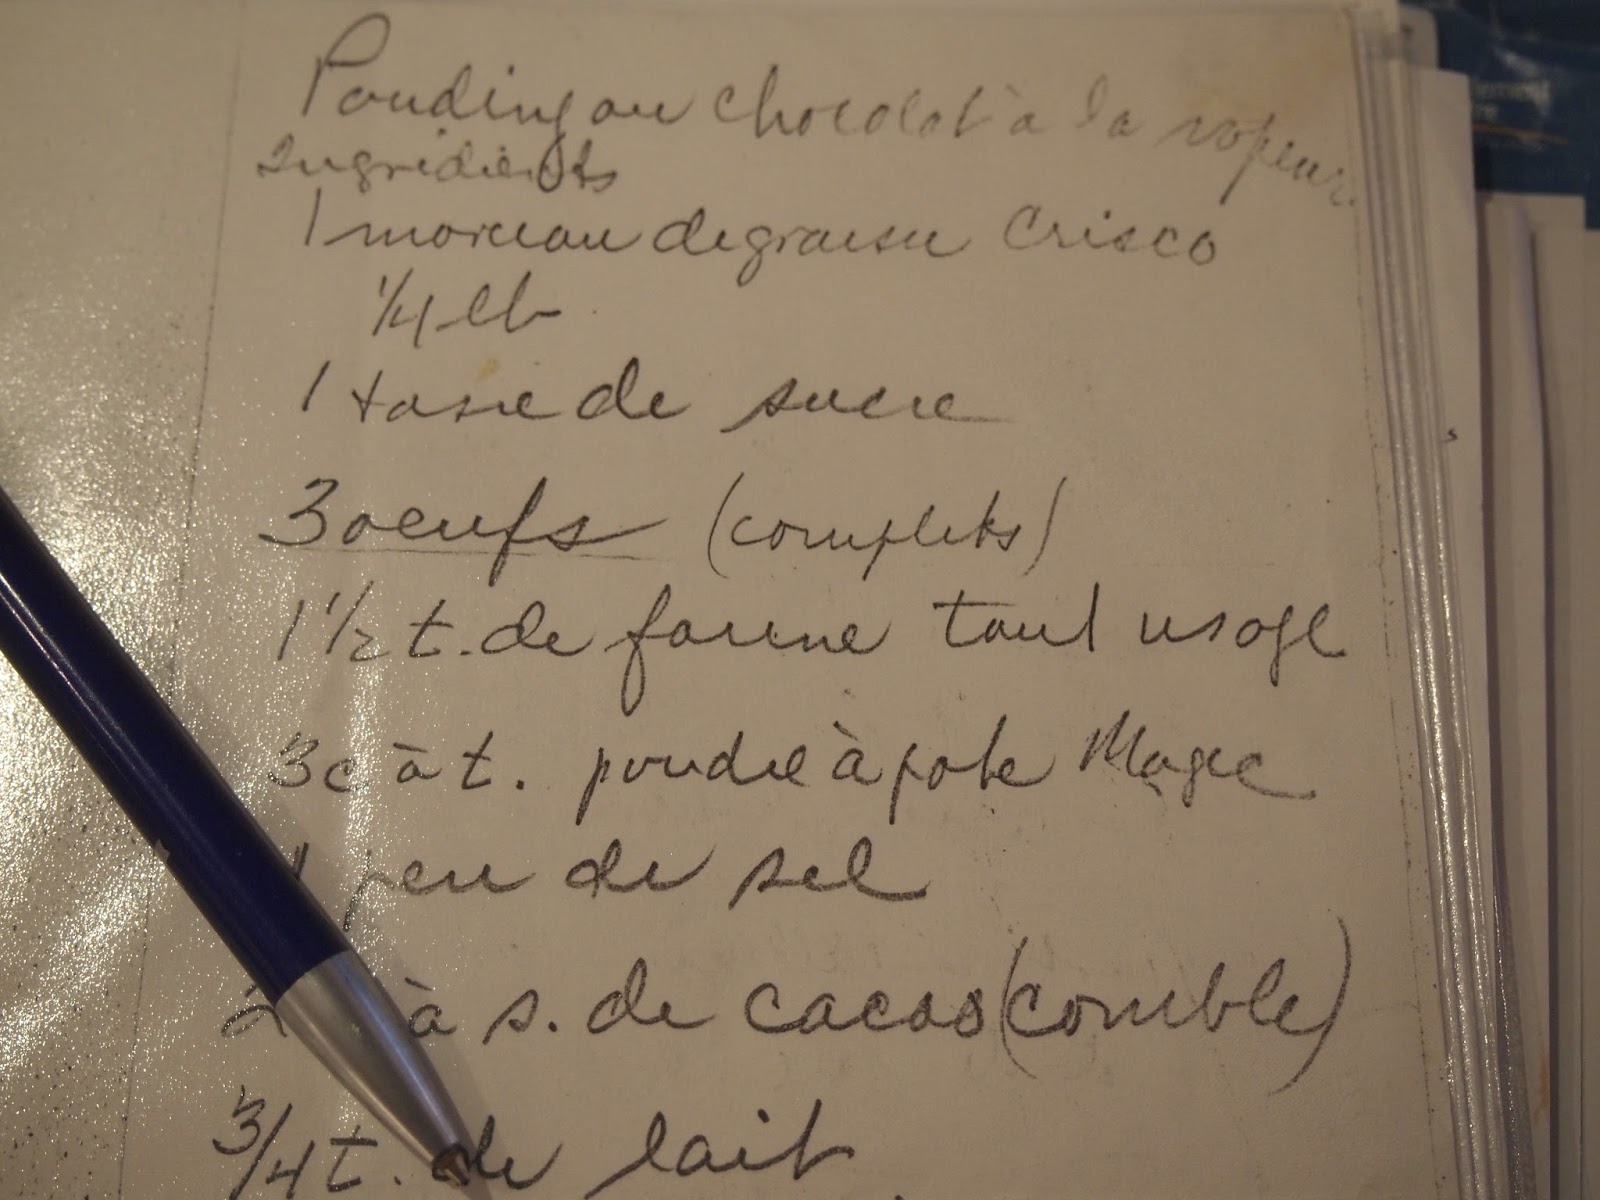 Pouding au chocolat à la vapeur
Ingrédients
1 morceau de graisse Crisco
1/4 lb
1 tasse de sucre
3 oeufs (complets)
1 1/2 t. de farine tout usage
3 c à t. poudre à pate Magic
1 peu de sel
2 à s. de cacao (comble)
3/4 t. de lait